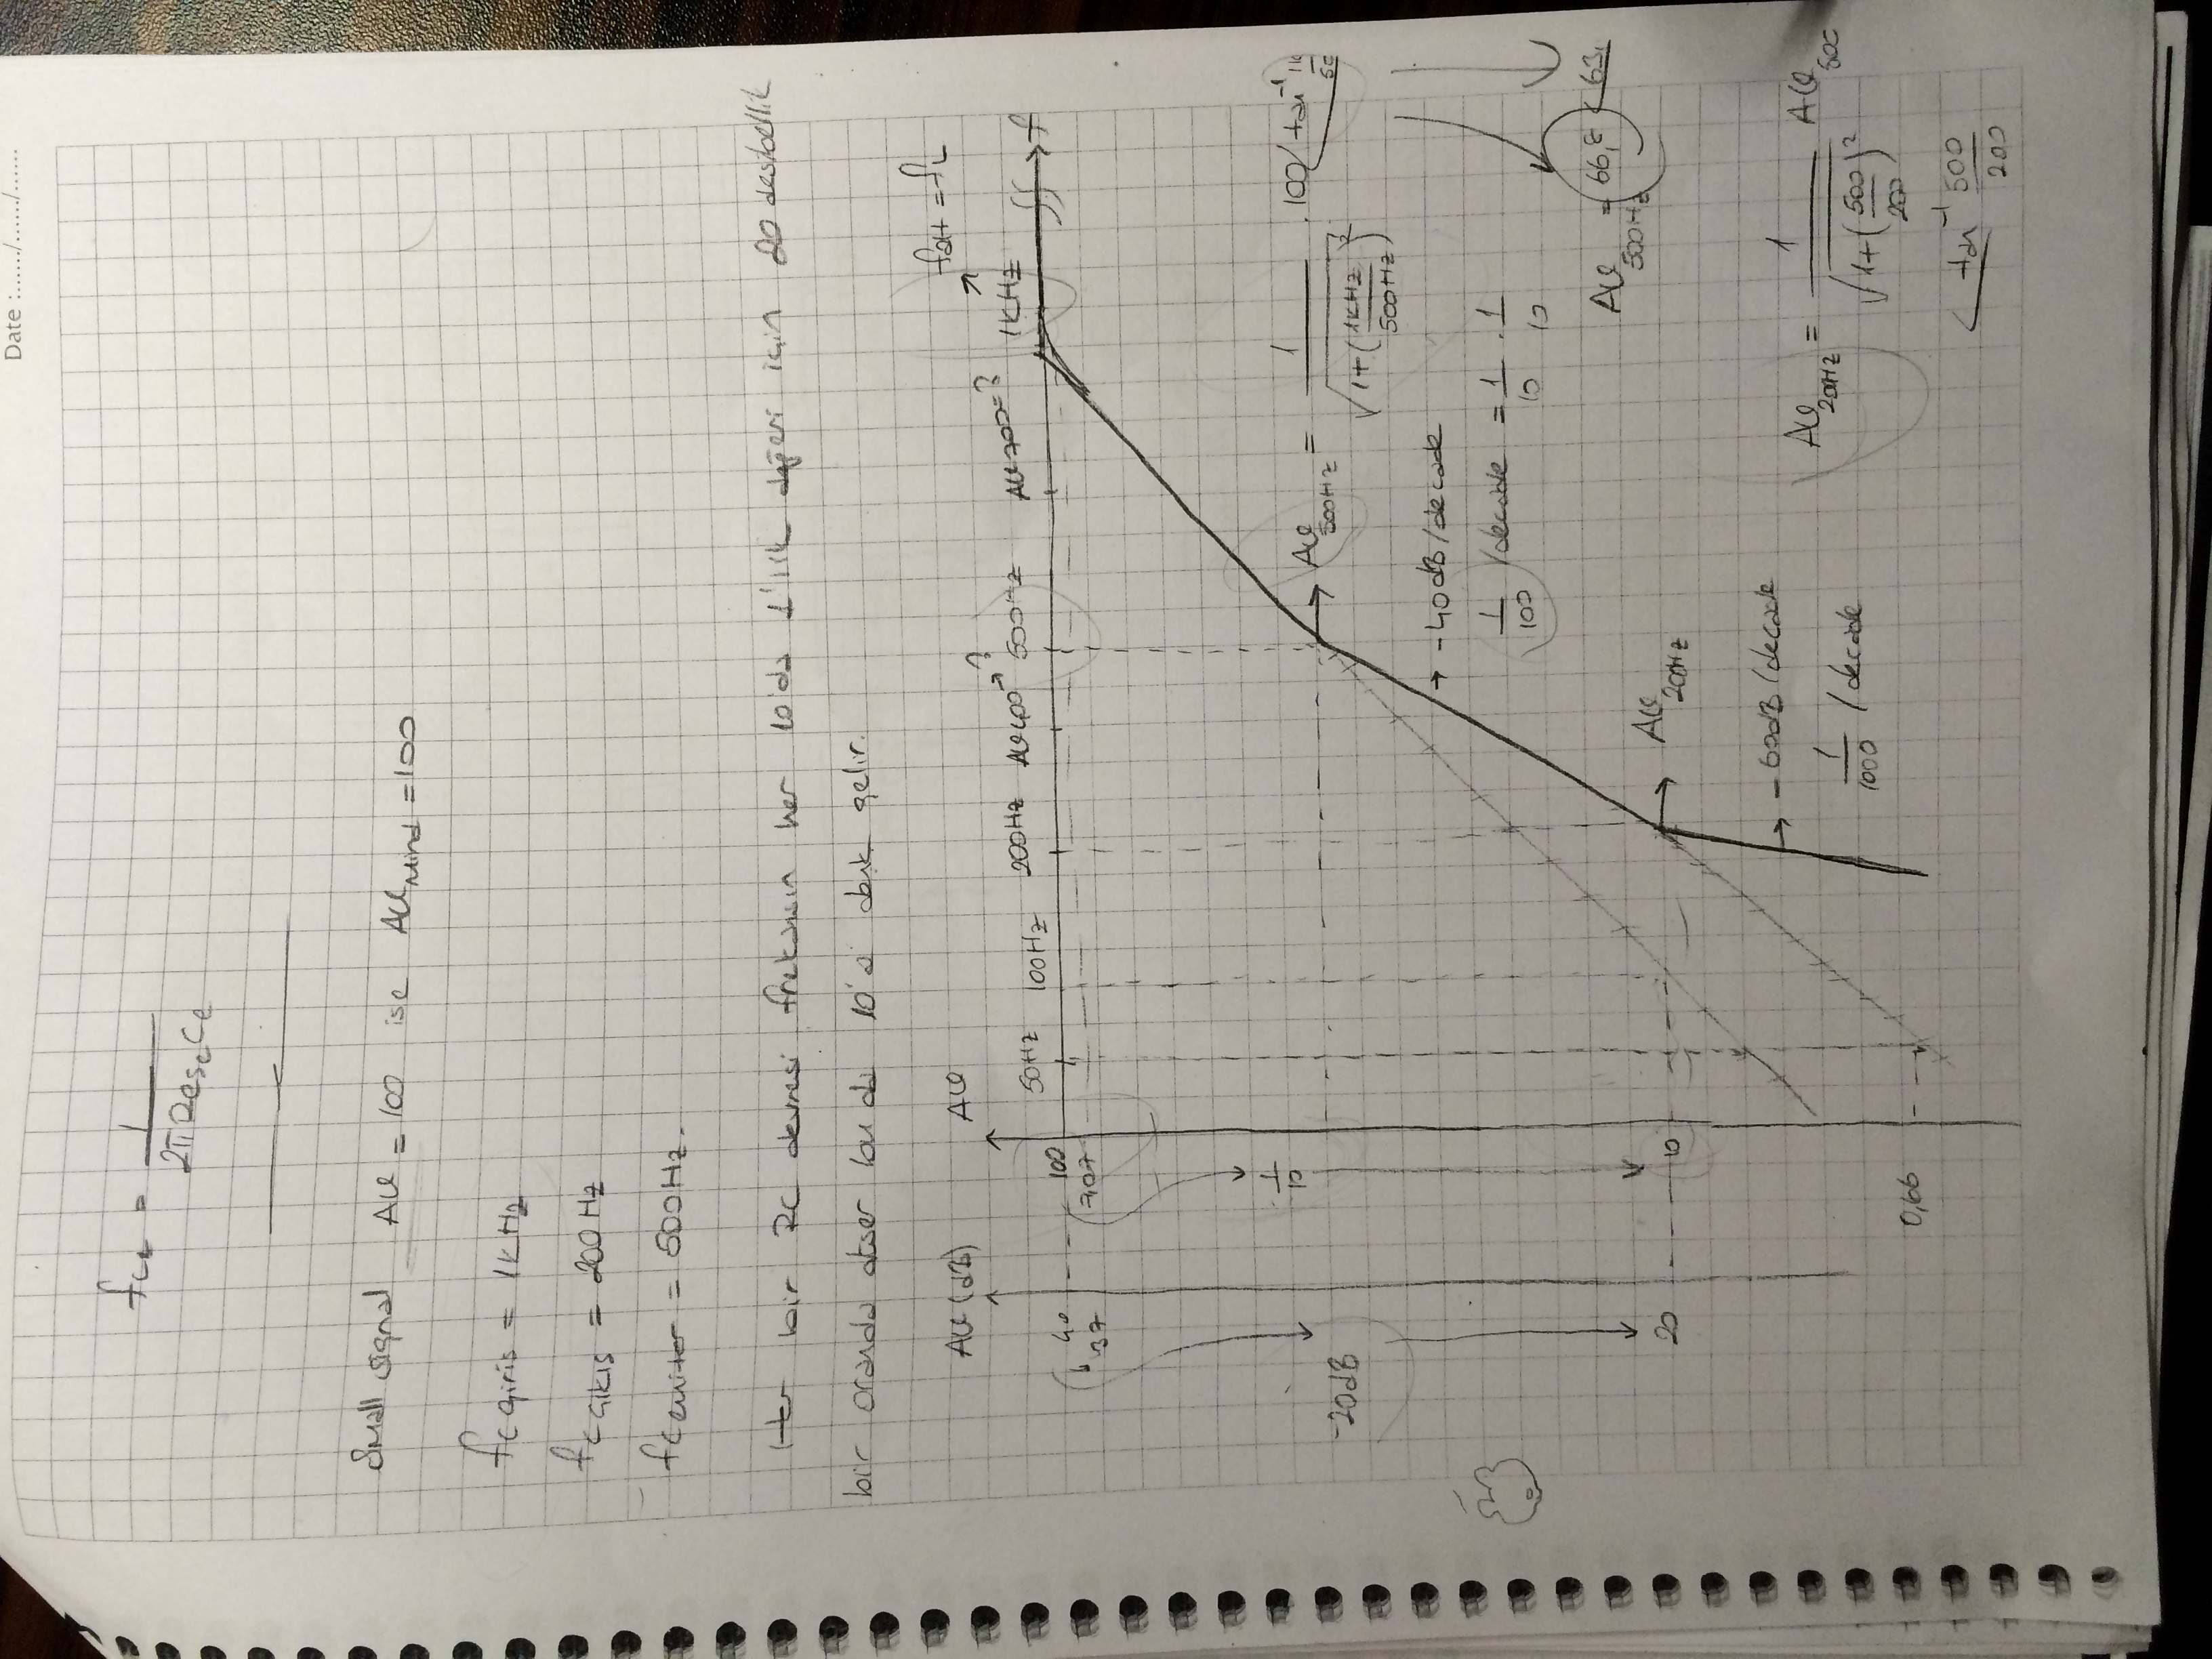 Date :....../....../......
fc = 1 / 2π Resc Ce
Small signal Av = 100 ise Av mind = 100
fc giriş = 1KHz
fc çıkış = 200 Hz
fc emiter = 500Hz.
Her bir RC devresi frekansın her 10'da 1'lik değeri için 20 desibellik
bir oranda düşer bu da 10'a denk gelir.
Av (dB) Av falt = fL
50Hz 100Hz 200Hz Av400 → ? 500Hz Av700=? 1KHz f
40 100
37 7,07
1/10
-20dB
Av500Hz = 1 / √1+(1KHz/500Hz)² . 100 / tan⁻¹
→ -40dB/decade
1/100 /decade = 1/10 . 1/10
Av500Hz = 66,8 < 63,
20 10 Av200Hz
→ -60dB/decade
1/1000 /decade
Av200Hz = 1 / √1+(500/200)² Av500
< tan⁻¹ 500/200
0,66